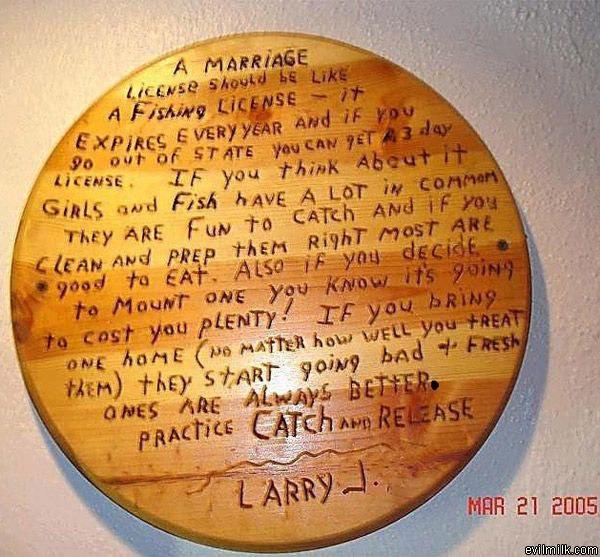 A MARRIAGE
LICENSE Should bE LIKE
A FIShING LICENSE - it
EXPIRES EVERY YEAR AND if YOU
go out OF STATE YOU CAN gET A 3 day
LICENSE. IF you think About it
GIRLS and FISh hAVE A LOT IN COMMON
ThEY ARE FUN to CATCH AND iF YOU
CLEAN AND PREP thEM RIGHT MOST ARE
good to EAT. ALSO if you DECIDE
to MOUNT ONE you KNOW it's going
to COST you PLENTY! IF you bRING
ONE hOME (NO MATTER how WELL you TREAT
thEM) thEY START going bad + FRESH
ONES ARE ALWAYS BETTER.
PRACTICE CATCh AND RELEASE
LARRY J.
MAR 21 2005
evilmilk.com